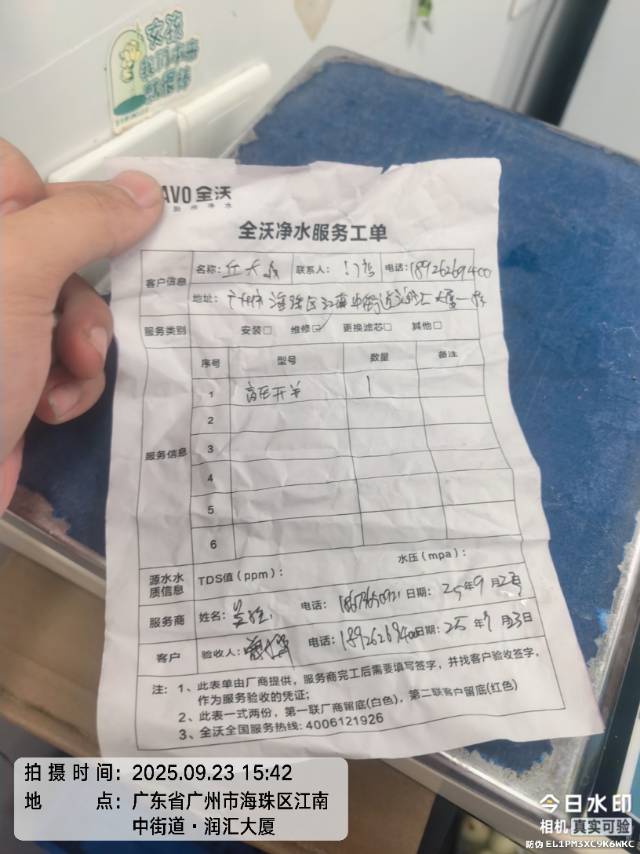 AVO 全沃
全沃净水服务工单
客户信息 名称: 联系人: 电话:18926269400
地址: 广州市海珠区江南中街道润汇大厦
服务类别 安装□ 维修☑ 更换滤芯□ 其他□
服务信息 序号 型号 数量 备注
1 高压开关 1
2
3
4
5
6
源水水质信息 TDS值(ppm): 水压(mpa):
服务商 姓名: 电话: 日期: 25年9月23日
客户 验收人: 电话:18926269400日期: 25年9月23日
注: 1、此表单由厂商提供,服务商完工后需要填写签字,并找客户验收签字,
作为服务验收的凭证;
2、此表一式两份,第一联厂商留底(白色),第二联客户留底(红色)
3、全沃全国服务热线: 4006121926
拍摄时间: 2025.09.23 15:42
地点: 广东省广州市海珠区江南
中街道·润汇大厦
今日水印
相机 真实可验
防伪 EL1PM3XC9K6WKC